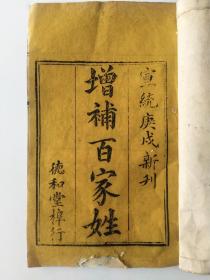 宣統庚戌新刊
增補百家姓
德和堂梓行